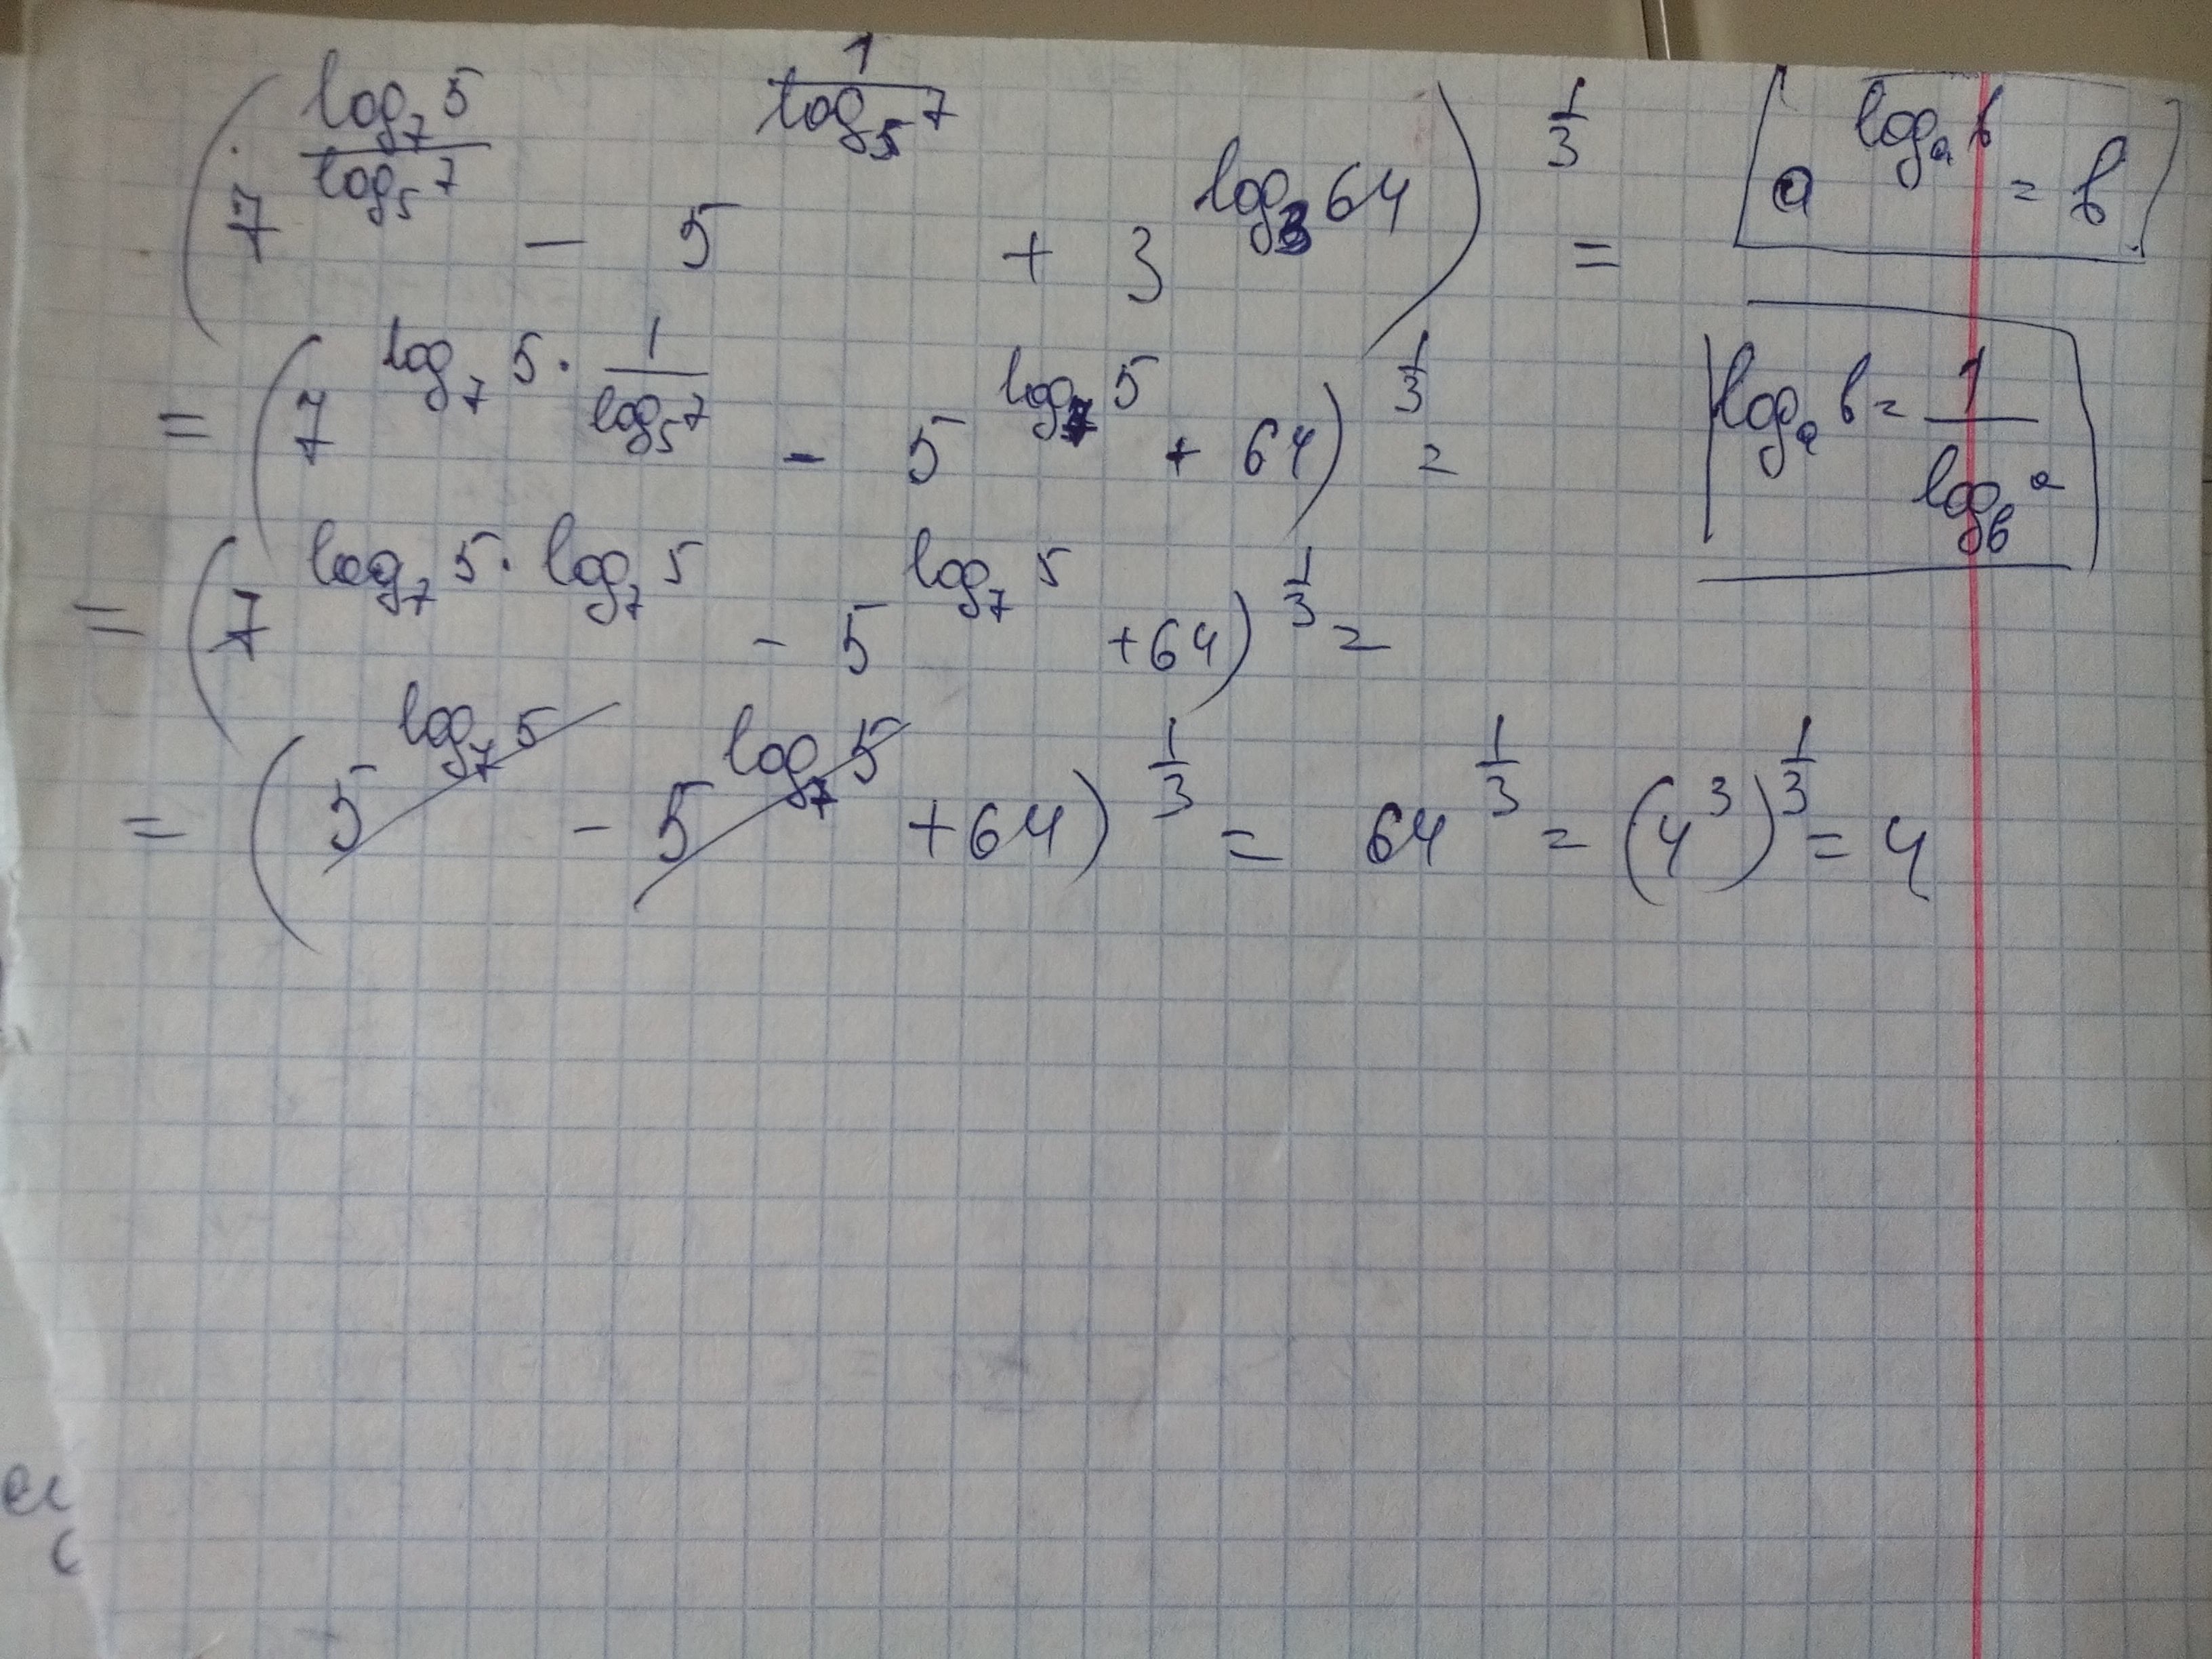 (7^(log₇5 / log₅7) − 5^(1 / log₅7) + 3^(log₃64))^(1/3) =
a^(logₐb) = b
= (7^(log₇5 · 1/log₅7) − 5^(log₇5) + 64)^(1/3) =
logₐb = 1 / log_b a
= (7^(log₇5 · log₇5) − 5^(log₇5) + 64)^(1/3) =
= (5^(log₇5) − 5^(log₇5) + 64)^(1/3) = 64^(1/3) = (4³)^(1/3) = 4